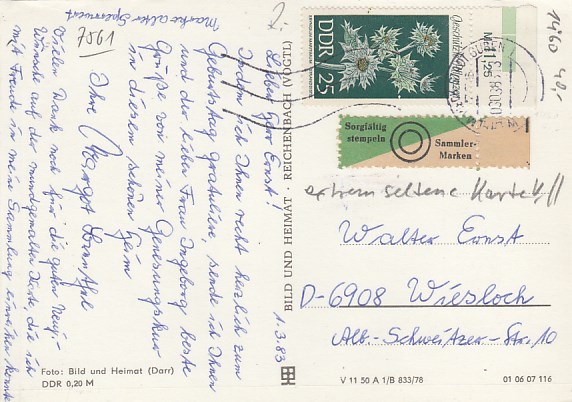 1.3.83
Lieber Herr Ernst!
Indem ich Ihnen recht herzlich zum
Geburtstag gratuliere, sende ich Ihnen
und der lieben Frau Ingeborg beste
Grüße von meiner Genesungskur
in diesem schönen Heim
Ihre Margot
Vielen Dank noch für die guten Neuj.-
Wünsche auf der mundgemalten Karte, die ich
mit Freude in meine Sammlung einreihen konnte
Marke unter Sperrwert
7561
Foto: Bild und Heimat (Darr)
DDR 0,20 M
BILD UND HEIMAT · REICHENBACH (VOGTL)
DDR 25
Geschützte
1460 40,-
Sorgfältig
stempeln
Sammler-
Marken
extrem seltene Karte !!
Walter Ernst
D-6908 Wiesloch
Alb.-Schweitzer-Str. 10
V 11 50 A 1/B 833/78
01 06 07 116